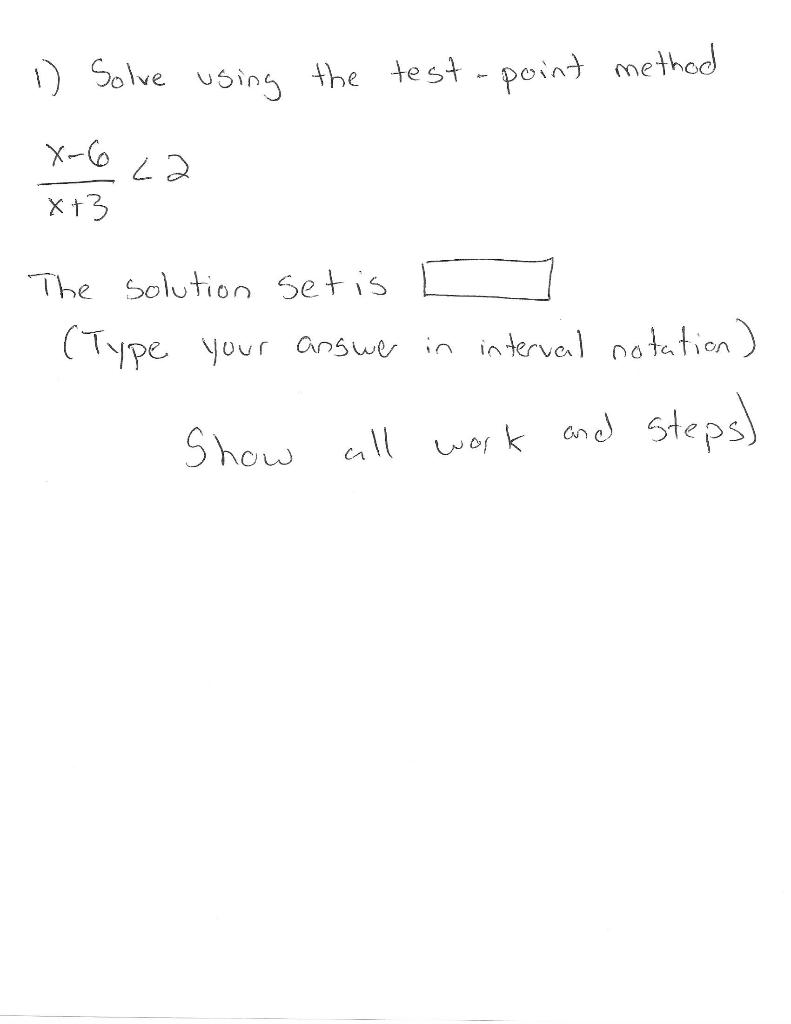 1) Solve using the test-point method
x-6
x+3
< 2
The solution set is
(Type your answer in interval notation)
Show all work and steps)